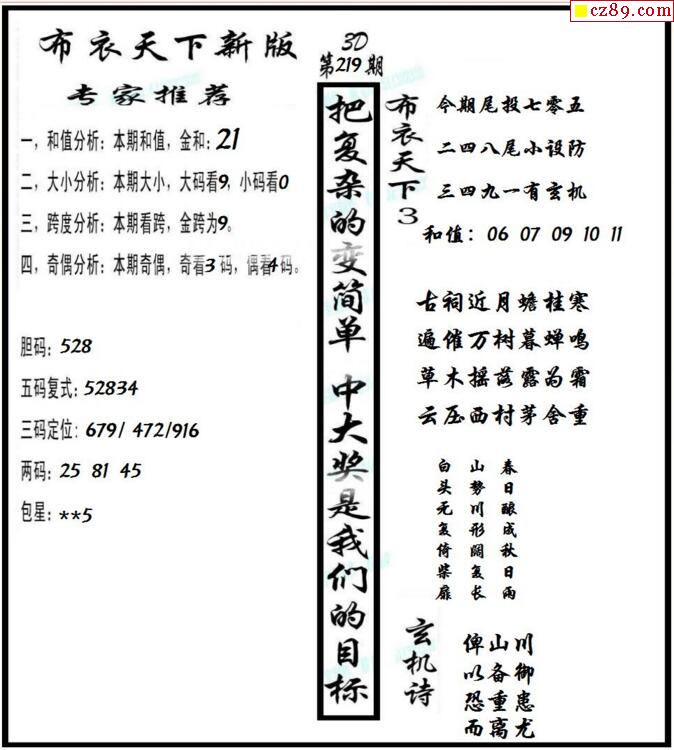 cz89.com
布衣天下新版
专家推荐
一，和值分析：本期和值，金和：21
二，大小分析：本期大小，大码看9，小码看0
三，跨度分析：本期看跨，金跨为9。
四，奇偶分析：本期奇偶，奇看3码，偶看4码。
胆码：528
五码复式：52834
三码定位：679/ 472/916
两码：25 81 45
包星：**5
3D
第219期
把复杂的变简单 中大奖是我们的目标
布衣天下3
今期尾投七零五
二四八尾小设防
三四九一有玄机
和值：06 07 09 10 11
古祠近月蟾桂寒
遍催万树暮蝉鸣
草木摇落露为霜
云压西村茅舍重
春日酿成秋日雨
山势川形阔复长
白头无复倚柴扉
玄机诗
俾山川
以备御
恐重患
而离尤